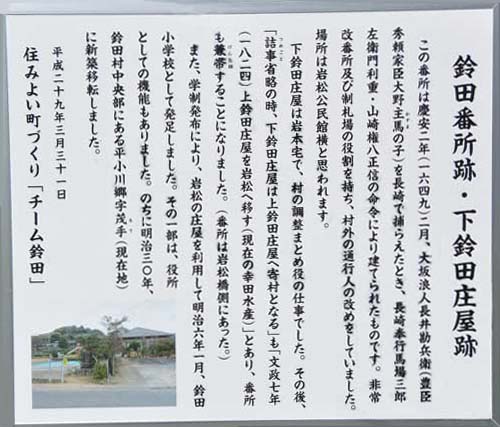 鈴田番所跡・下鈴田庄屋跡
この番所は慶安二年(一六四九)二月、大坂浪人長井勘兵衛(豊臣
秀頼家臣大野主馬の子)を長崎で捕らえたとき、長崎奉行馬場三郎
左衛門利重・山崎権八正信の命令により建てられたものです。非常
改番所及び制札場の役割を持ち、村外の通行人の改めをしていました。
場所は岩松公民館横と思われます。
下鈴田庄屋は岩本宅で、村の調整まとめ役の仕事でした。その後、
「詰事省略の時、下鈴田庄屋は上鈴田庄屋へ寄村となる」も「文政七年
(一八二四)上鈴田庄屋を岩松へ移す(現在の幸田水産)」とあり、番所
も兼帯することになりました。(番所は岩松橋側にあった。)
また、学制発布により、岩松の庄屋を利用して明治六年一月、鈴田
小学校として発足しました。その一部は、役所
としての機能もありました。のちに明治三〇年、
鈴田村中央部にある平小川郷字茂手(現在地)
に新築移転しました。
平成二十九年三月三十一日
住みよい町づくり「チーム鈴田」